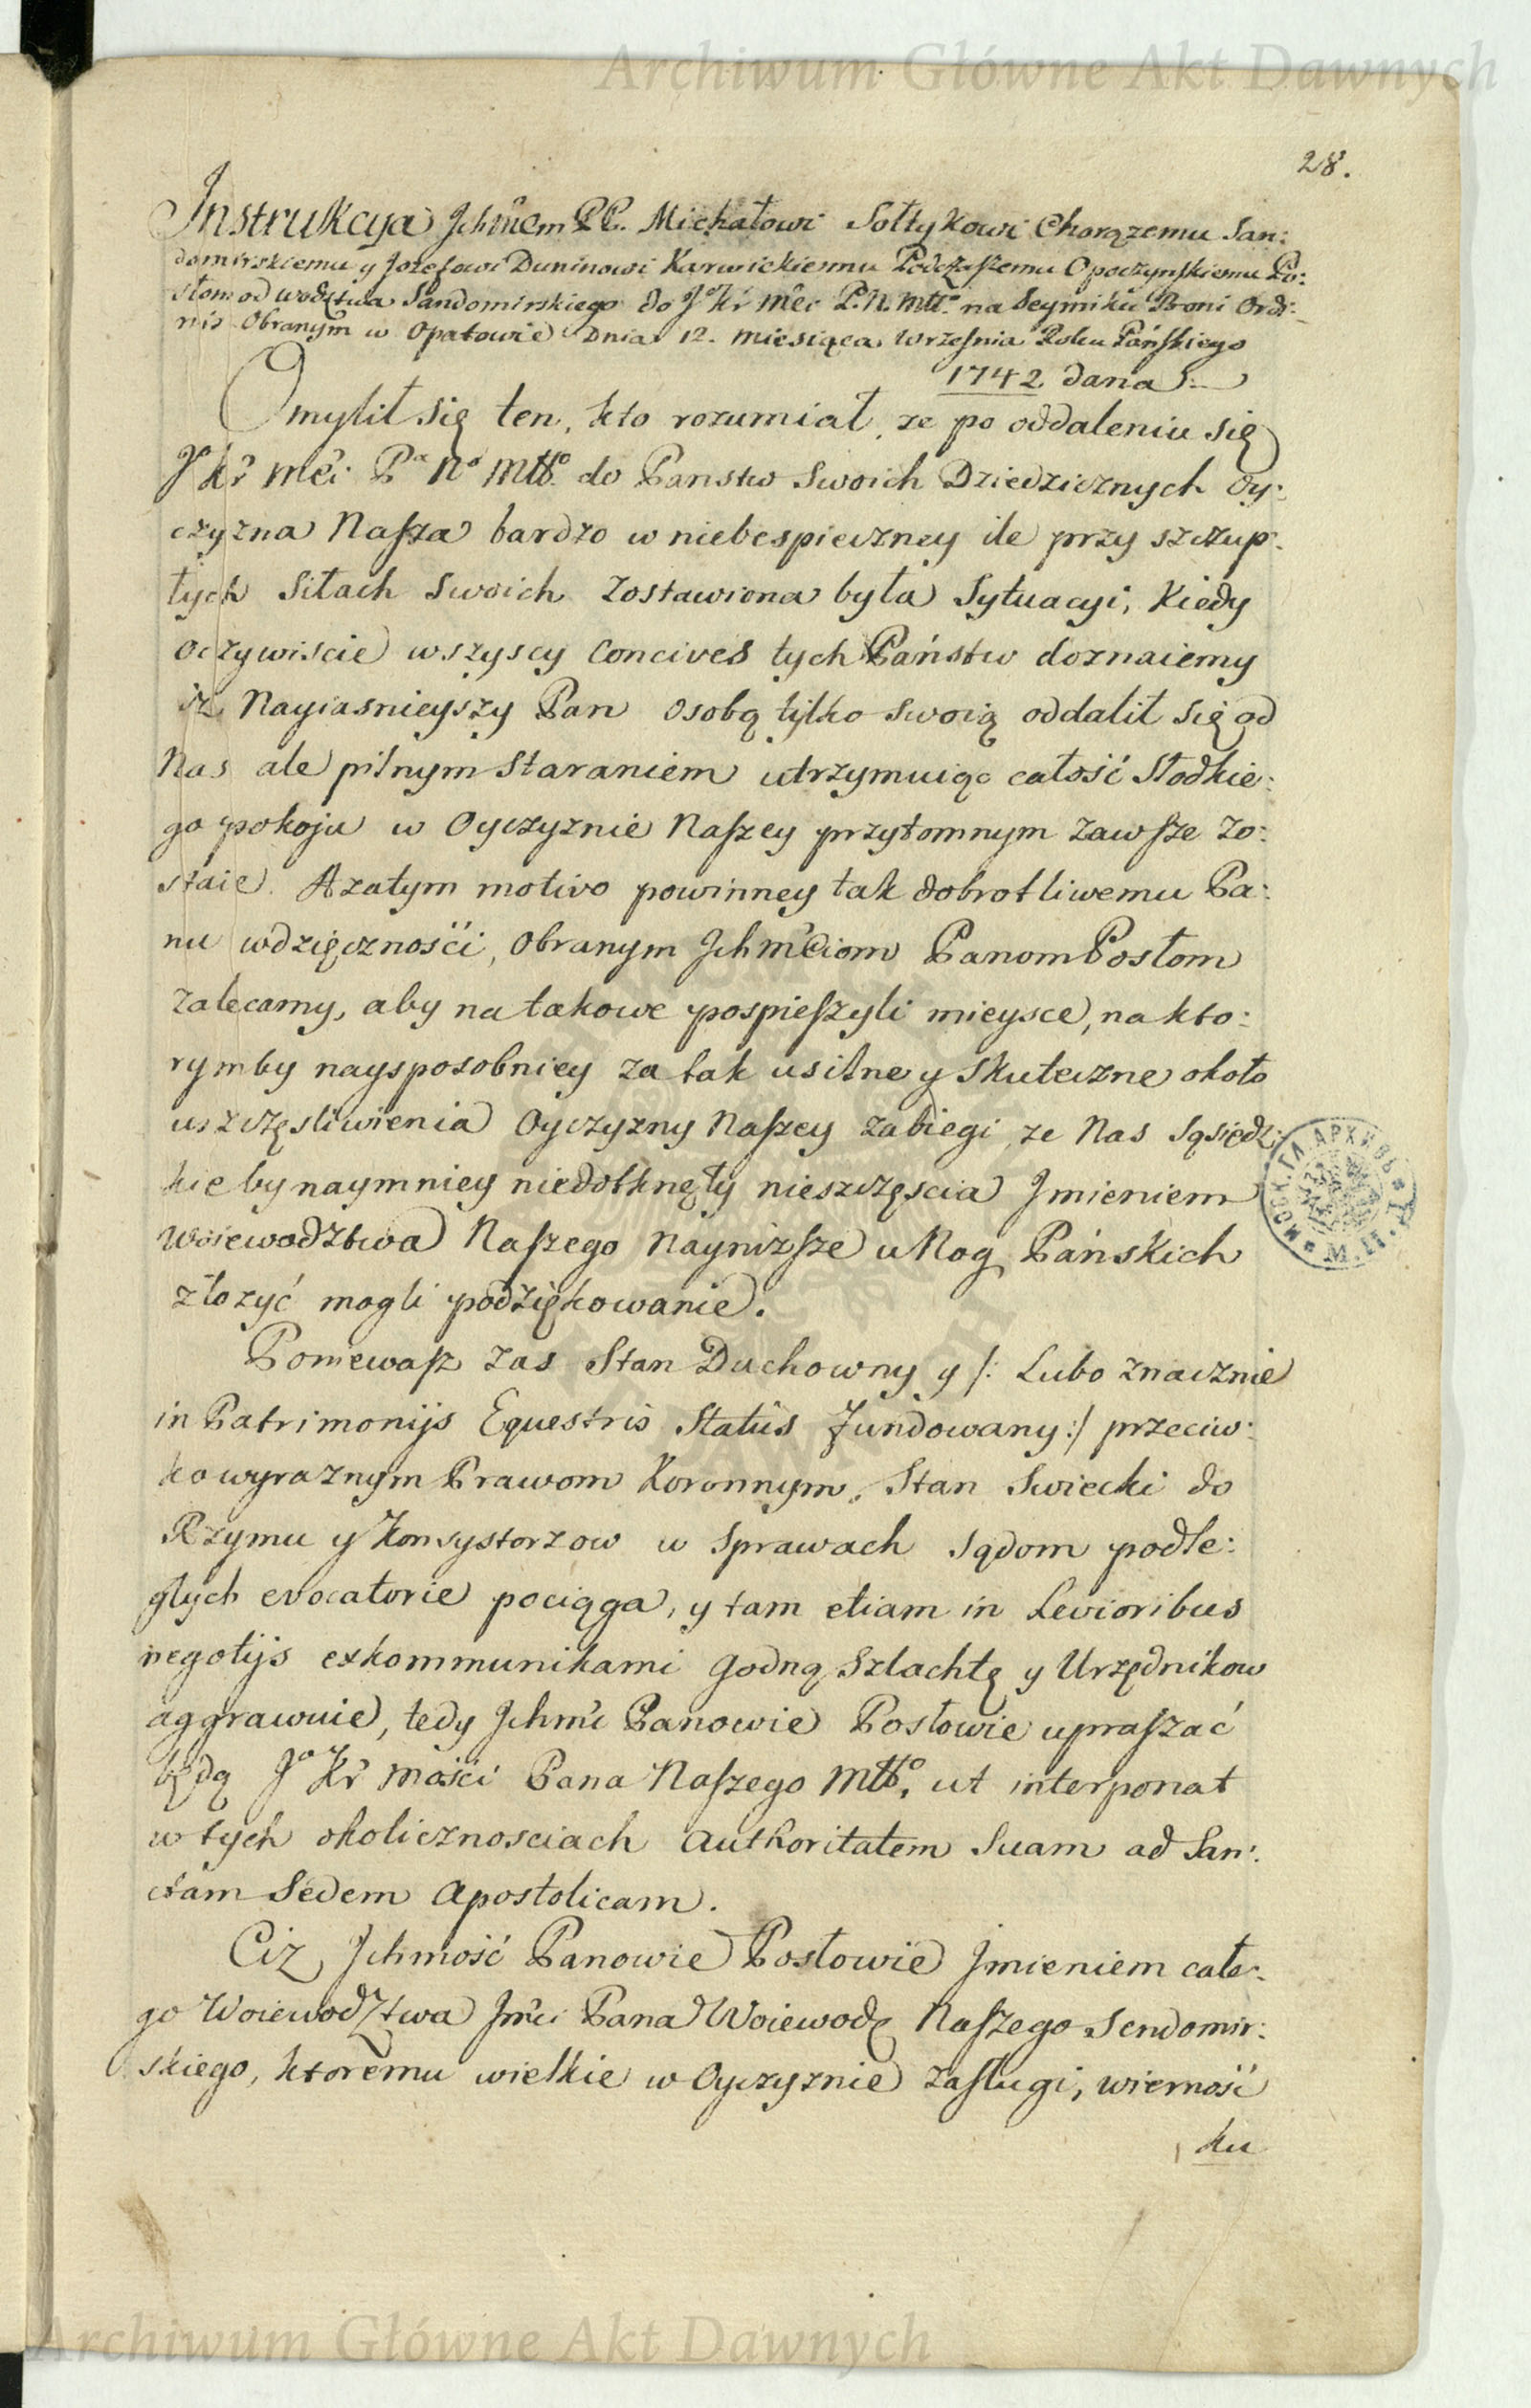 Archiwum Główne Akt Dawnych
28.
Instrukcya Ichmcem PP. Michałowi Sołtykowi Chorązemu San:
domirskiemu y Jozefowi Duninowi Karwickiemu Podczaszemu Opoczynskiemu Po:
słom od wodztwa Sandomirskiego do Jº Kr Mci P. N. Mttº na Seymiku Boni Ordi:
nis Obranym w Opatowie Dnia 12. Miesiąca Wrzesnia Roku Pańskiego
1742 dana :
Omylił się ten, kto rozumiał, ze po oddaleniu się
Jº Kr Mci Pª Nº Mttº do Panstw Swoich Dziedzicznych Oy:
czyzna Nasza bardzo w niebespieczney ile przy szczup:
łych Siłach Swoich Zostawiona była Sytuacyi, Kiedy
oczywiscie wszyscy Concives tych Państw doznaiemy
iz Nayiasnieyszy Pan Osobą tylko swoią oddalił się od
Nas ale pilnym Staraniem utrzymuiąc całość Słodkie:
go pokoju w Oyczyznie Naszey przytomnym zawsze zo:
staie. A zatym motivo powinney tak dobrotliwemu Pa:
nu wdzięcznosći, Obranym Ichmciom Panom Posłom
Zalecamy, aby na takowe pospieszyli mieysce, na kto:
rymby naysposobniey za tak usilne y Skuteczne około
uszczęsliwienia Oyczyzny Naszey zabiegi, ze Nas Sąsiedz:
kie by naymniey niedotknęły nieszczęscia Imieniem
Woiewodztwa Naszego Nayniższe u Nog Pańskich
złozyć mogli podziękowanie.
Poniewasz zas Stan Duchowny y /: Lubo znacznie
in Patrimonijs Equestris Status fundowany :/ przeciw:
ko wyraznym Prawom Koronnym, Stan Swiecki do
Rzymu y Konsystorzow w Sprawach Sądom podle:
głych evocatorie pociąga, y tam etiam in Levioribus
negotijs exkommunikami Godną Szlachtę y Urzędnikow
aggrawuie, tedy Ichmć Panowie Posłowie upraszać
będą Jº Kr Mości Pana Naszego Mttº, ut interponat
w tych okolicznosciach Authoritatem Suam ad San:
ctam Sedem Apostolicam.
Ciz Ichmość Panowie Posłowie Imieniem całe:
go Woiewodztwa Jmci Pana Woiewodę Naszego Sendomir:
skiego, ktoremu wielkie w Oyczyznie zasługi, wierność
ku
МОСК. ГЛ. АРХИВЪ
М. И. Д.
Archiwum Główne Akt Dawnych